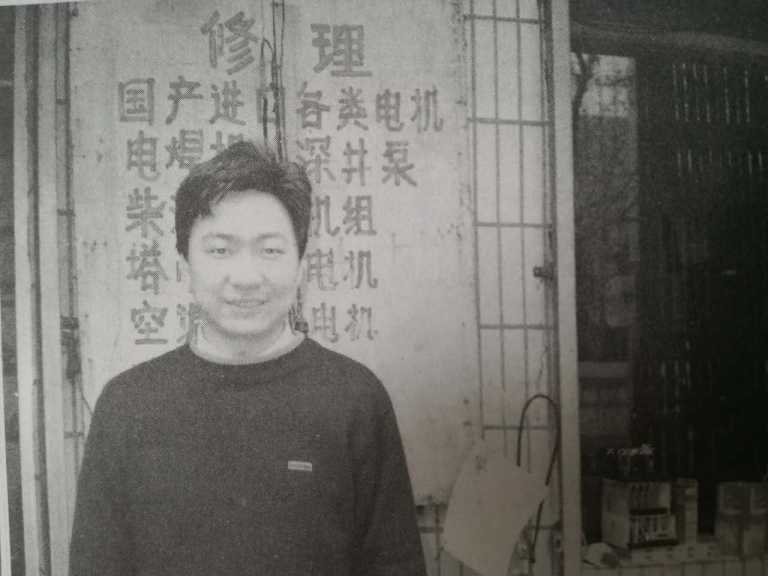 修理
国产进口各类电机
电焊机深井泵
柴机组
塔电机
空电机